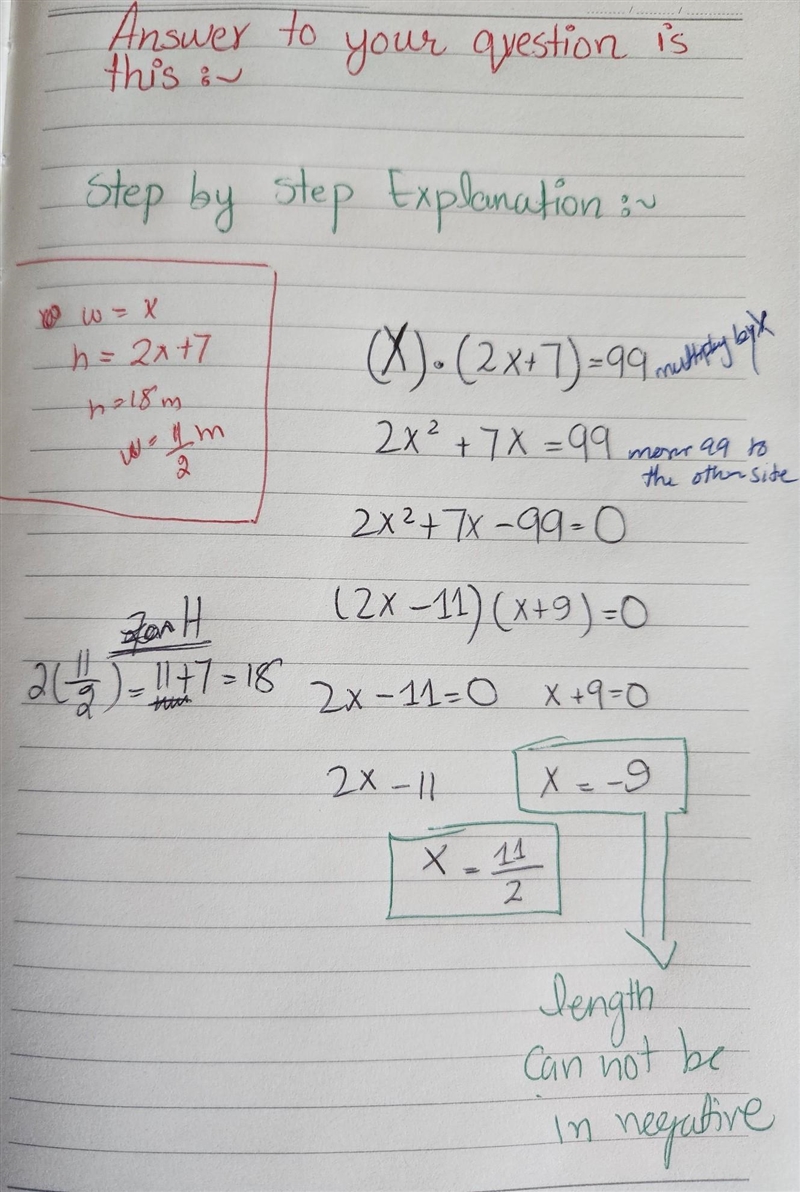 Answer to your question is
this :~
Step by step Explanation :~
w = x
h = 2x+7
h=18 m
w = 11/2 m
(X) . (2x+7) = 99 multiply by X
2x² + 7x = 99 99 to
the other site
2x² + 7x - 99 = 0
(2x - 11) (x+9) = 0
For H
2(11/2) = 11+7 = 18
2x - 11 = 0 x + 9 = 0
2x - 11 x = -9
x = 11/2
length
can not be
in negative